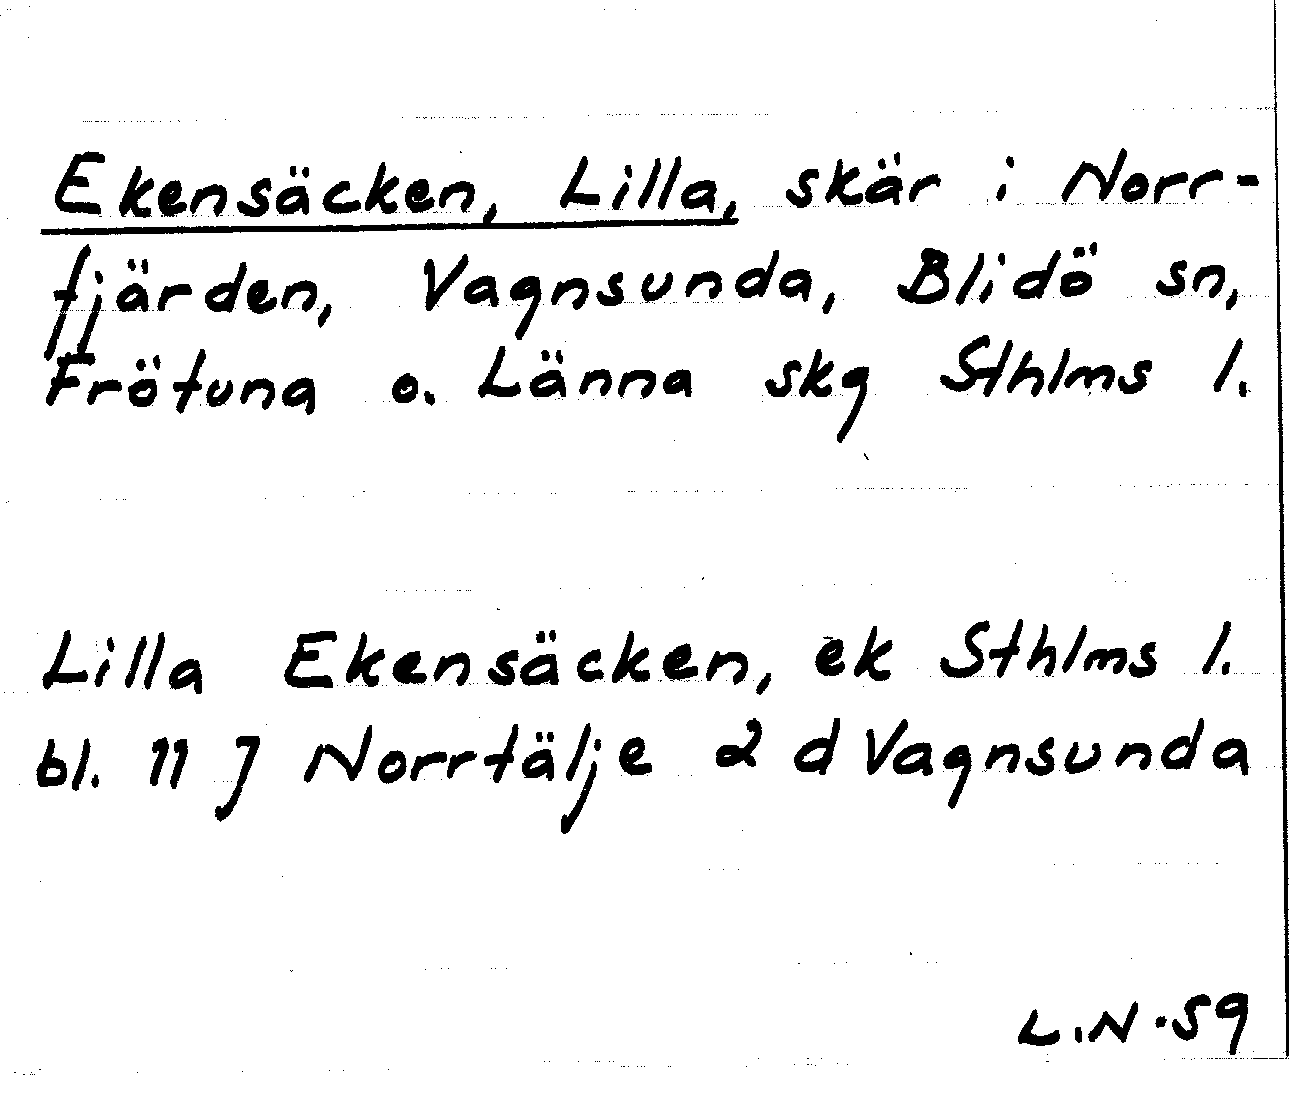 Ekensäcken, Lilla, skär i Norr-
fjärden, Vagnsunda, Blidö sn,
Frötuna o. Länna skg Sthlms l.
Lilla Ekensäcken, ek Sthlms l.
bl. 11 J Norrtälje 2 d Vagnsunda
L.N.59